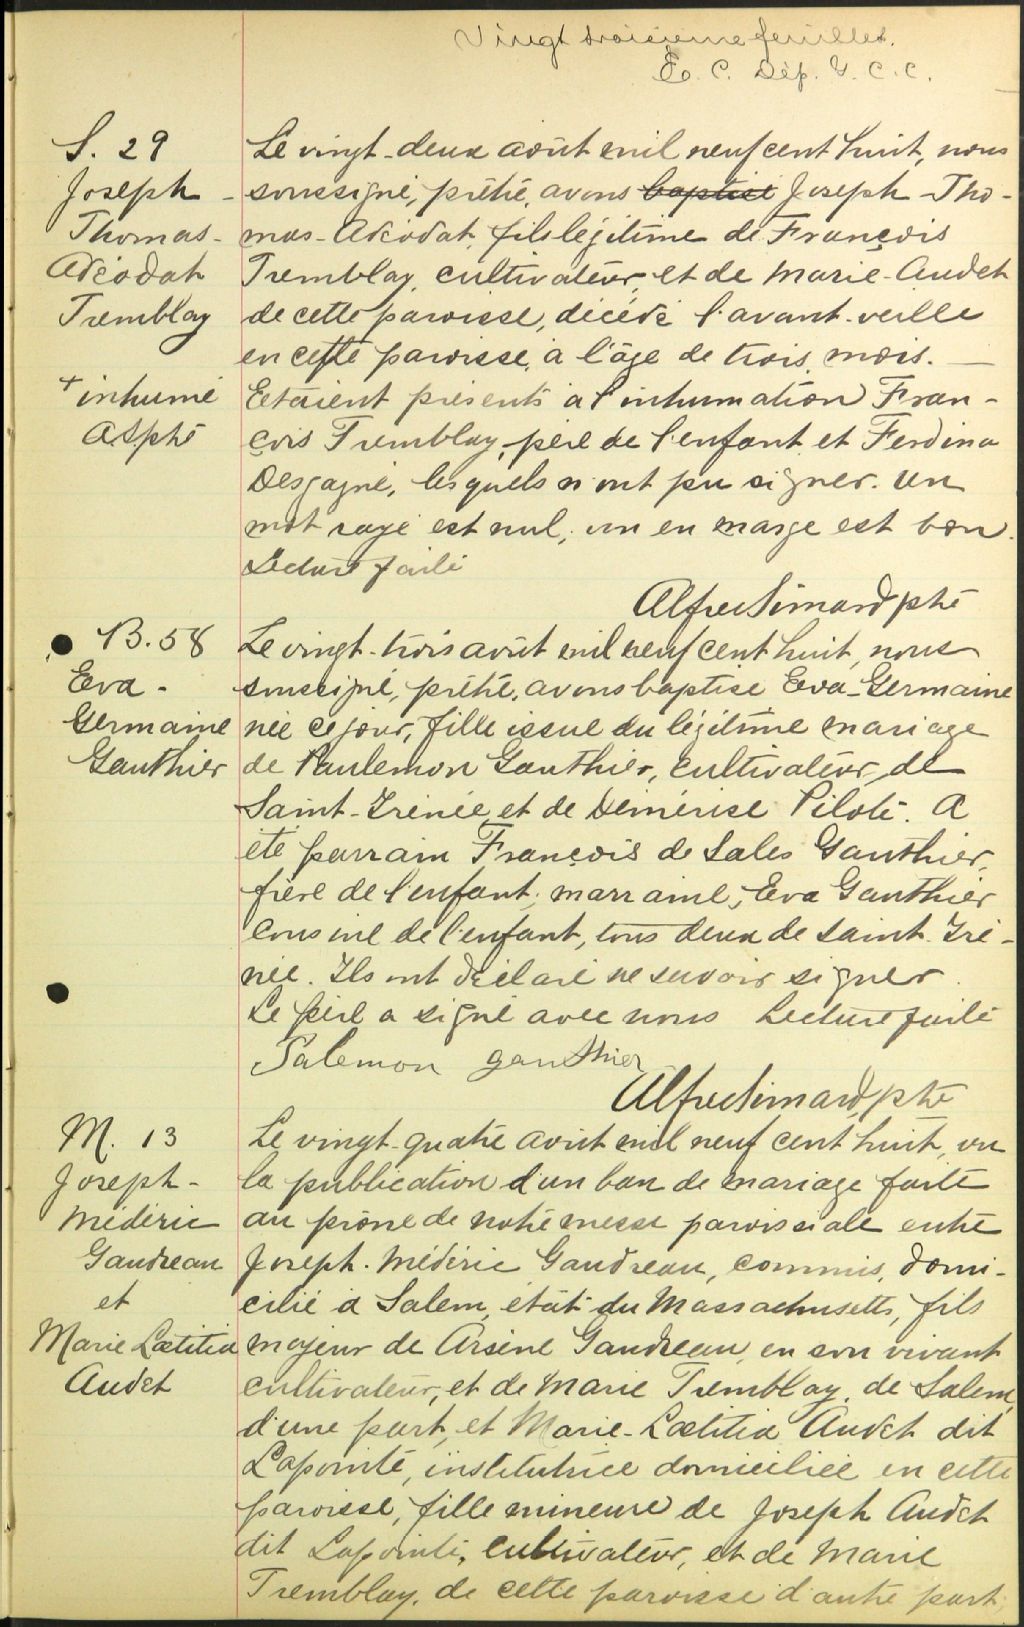 Vingt troisième feuillet.
E. C. Dép. G. C. C.
S. 29
Joseph-
Thomas-
Adéodat
Tremblay
+ inhumé
ASptre
Le vingt-deux août mil neuf cent huit, nous
soussigné, prêtre, avons baptisé Joseph-Tho-
mas-Adéodat, fils légitime de François
Tremblay, cultivateur, et de Marie Audet
de cette paroisse, décédé l'avant-veille
en cette paroisse, à l'âge de trois mois.
Etaient présents à l'inhumation Fran-
çois Tremblay, père de l'enfant et Ferdina
Desgagné, lesquels n'ont pu signer. Un
mot rayé est nul, un en marge est bon.
Lecture faite
Alfred Simard ptre
B. 58
Eva-
Germaine
Gauthier
Le vingt-trois août mil neuf cent huit, nous
soussigné, prêtre, avons baptisé Eva-Germaine
née ce jour, fille issue du légitime mariage
de Paulemon Gauthier, cultivateur, de
Saint-Irénée, et de Démérise Pilote. A
été parrain François de Sales Gauthier,
frère de l'enfant; marraine, Eva Gauthier
cousine de l'enfant, tous deux de Saint-Iré-
née. Ils ont déclaré ne savoir signer.
Le père a signé avec nous Lecture faite
Palemon gauthier
Alfred Simard, ptre
M. 13
Joseph-
Médéric
Gaudreau
et
Marie Lætitia
Audet
Le vingt-quatre août mil neuf cent huit, vu
la publication d'un ban de mariage faite
au prône de notre messe paroissiale entre
Joseph-Médéric Gaudreau, commis, domi-
cilié à Salem, état du Massachusetts, fils
majeur de Arsène Gaudreau, en son vivant
cultivateur, et de Marie Tremblay, de Salem,
d'une part, et Marie-Lætitia Audet dit
Lapointe, institutrice domiciliée en cette
paroisse, fille mineure de Joseph Audet
dit Lapointe, cultivateur, et de Marie
Tremblay, de cette paroisse d'autre part,